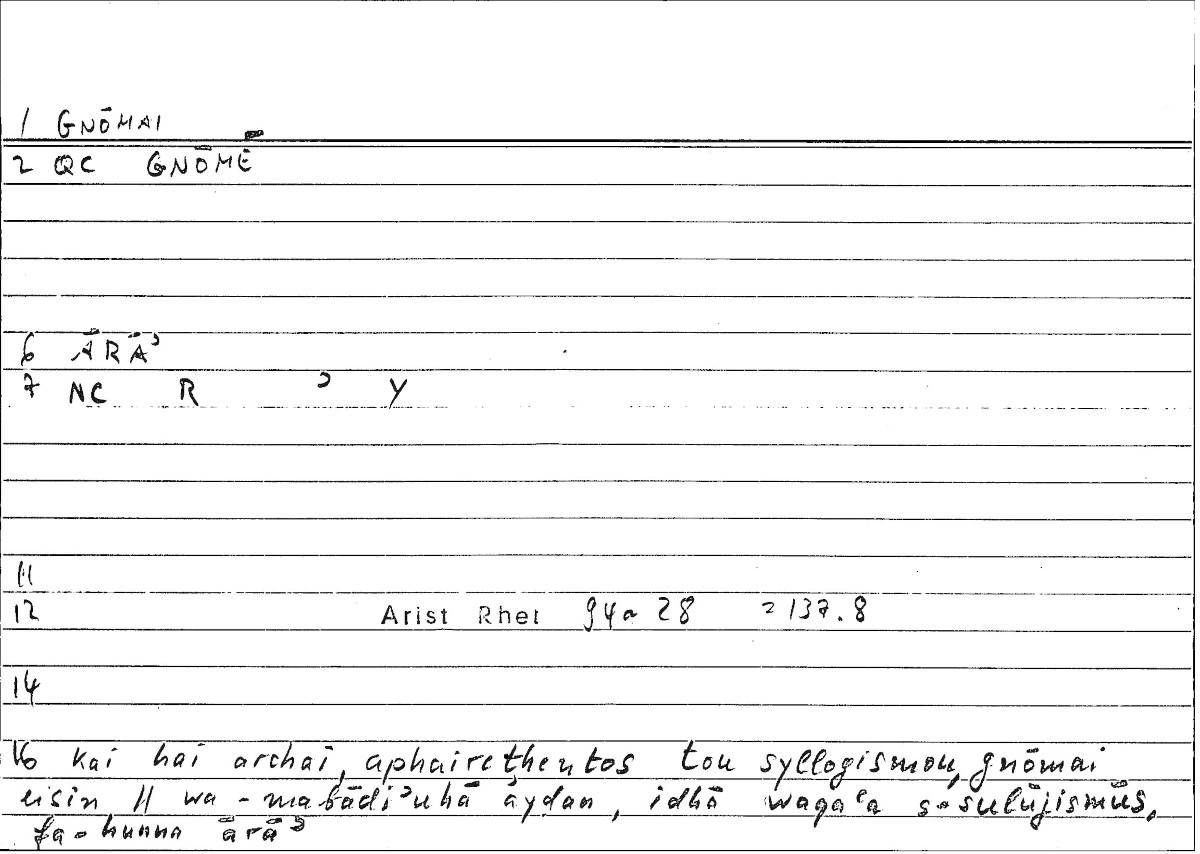 1 GNŌMAI
2 QC GNŌMĒ
6 ĀRĀʾ
7 NC R ʾ Y
11
12 Arist Rhet 94a 28 = 137.8
14
16 kai hai archai, aphairethentos tou syllogismou, gnōmai
eisin // wa-mabādiʾuhā aydan, idhā waqaʿa s-sulūjismūs,
fa-hunna ārāʾ